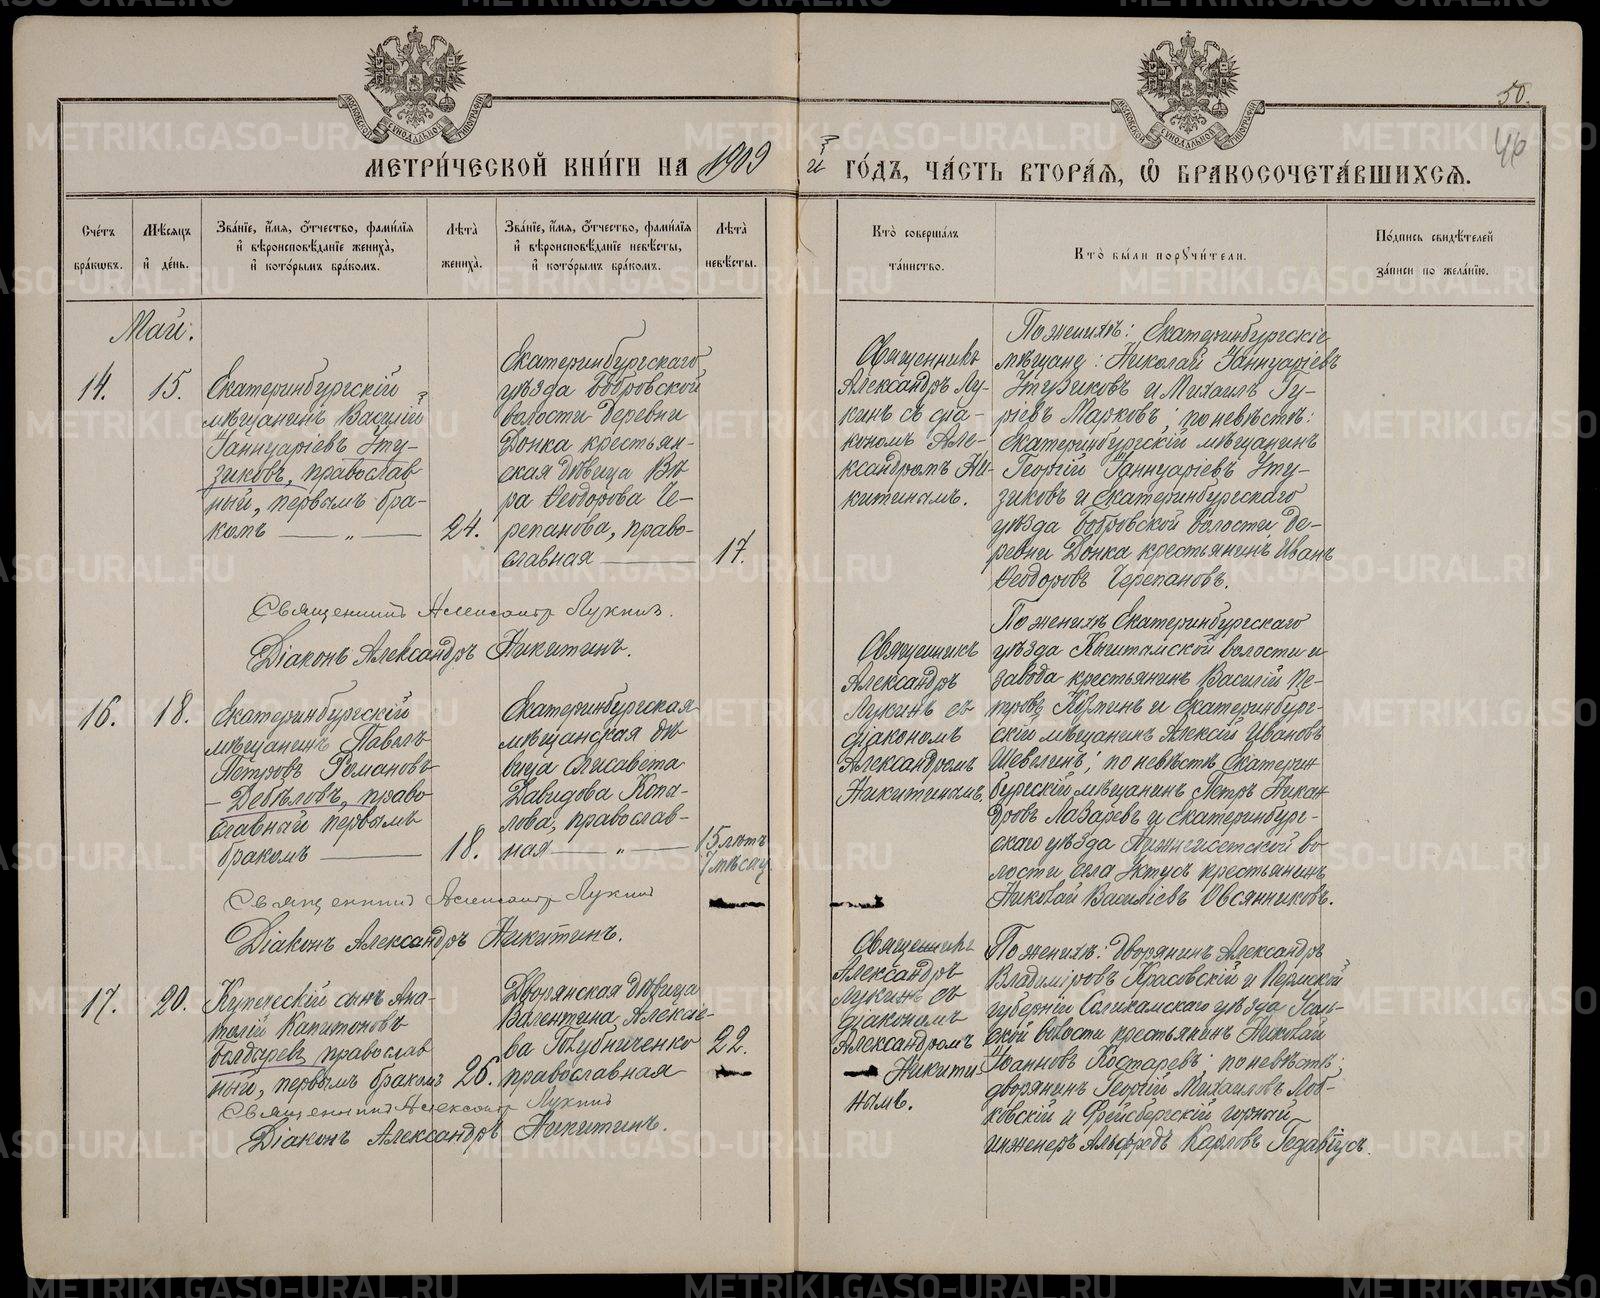 50.
46
МЕТРИ́ЧЕСКОЙ КНИ́ГИ НА 1909 й ГО́ДЪ, ЧА́СТЬ ВТОРА́Я, Ѽ БРАКОСОЧЕТА́ВШИХСЯ.
Сче́тъ бра́кωвъ.
Мѣ́сяцъ и҆ де́нь.
Зва́нїе, и҆́мя, ѻ҆́тчество, фами́лїя
и҆ вѣроисповѣ́данїе жениха̀,
и҆ кото́рымъ бра́комъ.
Лѣта̀ жениха̀.
Зва́нїе, и҆́мя, ѻ҆́тчество, фами́лїя
и҆ вѣроисповѣ́данїе невѣ́сты,
и҆ кото́рымъ бра́комъ.
Лѣта̀ невѣ́сты.
Кто̀ соверша́лъ та́инство.
Кто̀ бы́ли поручи́тели.
По́дпись свидѣ́телей за́писи по жела́нїю.
Май.
14.
15.
Екатеринбургскій
мѣщанинъ Василій
Іаннуаріевъ Уту-
зиковъ, православ
ный, первымъ бра-
комъ — „ —
24.
Екатеринбургскаго
уѣзда Бобровской
волости деревни
Донка крестьян-
ская дѣвица Вѣ
ра Ѳеодорова Че-
репанова, право-
славная —
17.
Священникъ
Александръ Лу-
кинъ съ діа-
кономъ Але-
ксандромъ Ни-
китинымъ.
По женихѣ: Екатеринбургскіе
мѣщане: Николай Іаннуаріевъ
Утузиковъ и Михаилъ Гу-
ріевъ Марковъ; по невѣстѣ:
Екатеринбургскій мѣщанинъ
Георгій Іаннуаріевъ Уту-
зиковъ и Екатеринбургскаго
уѣзда Бобровской волости де-
ревни Донка крестьянинъ Иванъ
Ѳеодоровъ Черепановъ.
Священникъ Александръ Лукинъ.
Діаконъ Александръ Никитинъ.
16.
18.
Екатеринбургскій
мѣщанинъ Павелъ
Петровъ Романовъ
- Дебѣловъ, право
славный первымъ
бракомъ —
18.
Екатеринбургская
мѣщанская дѣ
вица Елисавета
Давидова Копа-
лова, православ-
ная — „ —
15 лѣтъ
7 мѣсяц.
Священникъ
Александръ
Лукинъ съ
діакономъ
Александромъ
Никитинымъ.
По женихѣ Екатеринбургскаго
уѣзда Кыштымской волости и
завода крестьянинъ Василій Пе-
тровъ Козминъ и Екатеринбург-
скій мѣщанинъ Алексій Ивановъ
Шевелинъ; по невѣстѣ Екатерин
бургскій мѣщанинъ Петръ Никан
дровъ Лазаревъ и Екатеринбург-
скаго уѣзда Нижнеисетской во
лости села Уктусъ крестьянинъ
Николай Василіевъ Овсянниковъ.
Священникъ Александръ Лукинъ
Діаконъ Александръ Никитинъ.
17.
20.
Купеческій сынъ Ана
толій Капитоновъ
Болдыревъ, православ
ный, первымъ бракомъ
26.
Дворянская дѣвица
Валентина Алексіе-
ва Голубниченко
православная
22.
Священникъ
Александръ
Лукинъ съ
діакономъ
Александромъ
Никити-
нымъ.
По женихѣ: дворянинъ Александръ
Владиміровъ Красовскій и Пермской
губерніи Соликамскаго уѣзда Усоль-
ской волости крестьянинъ Николай
Іоанновъ Костаревъ; по невѣстѣ:
дворянинъ Георгій Михаиловъ Лов-
ковскій и Фрейбергскій горный
инженеръ Альфредъ Карловъ Гедавіусъ.
Священникъ Александръ Лукинъ
Діаконъ Александръ Никитинъ.
METRIKI.GASO-URAL.RU